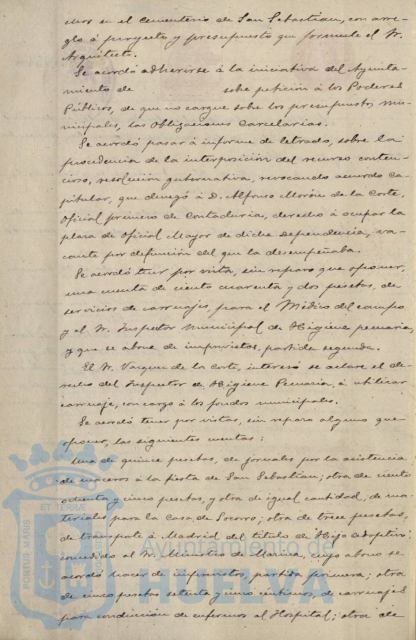 chos en el Cementerio de San Sebastian, con arre-
glo á proyecto y presupuesto que formule el Sr.
Arquitecto.
Se acordó adherirse á la iniciativa del Ayunta-
miento de sobre petición á los Poderes
Públicos, de que no cargue sobre los presupuestos mu-
nicipales, las Obligaciones Carcelarias.
Se acordó pasar á informe de letrado, sobre la
procedencia de la interposición del recurso conten-
cioso, resolución gubernativa, revocando acuerdo Ca-
pitular, que denegó á D. Alfonso Morón de la Corte,
Oficial primero de Contaduria, derecho á ocupar la
plaza de Oficial Mayor de dicha dependencia, va-
cante por defunción del que la desempeñaba.
Se acordó tener por vista, sin reparo que oponer,
una cuenta de ciento cuarenta y dos pesetas, de
servicios de carruajes, para el Médico del campo
y el Sr. Inspector Municipal de Higiene pecuaria,
y que se abone de imprevistos, partida segunda.
El Sr. Vazquez de la Corte, interesó se aclare el de-
recho del Inspector de Higiene Pecuaria, á utilizar
carruaje, con cargo á los fondos municipales.
Se acordó tener por vistas, sin reparo alguno que
oponer, las siguientes cuentas:
Una de quince pesetas, de jornales por la asistencia
de maceros á la fiesta de San Sebastian; otra de ciento
ochenta y cinco pesetas, y otra de igual cantidad, de ma-
teriales para la Casa de Socorro; otra de trece pesetas,
de transporte á Madrid del título de Hijo adoptivo
concedido al Sr. Ministro de Marina, cuyo abono se
acordó hacer de imprevistos, partida primera; otra
de cinco pesetas setenta y cinco céntimos, de carruajes
para conducción de enfermos al Hospital; otra de
Ayuntamiento de
HUELVA
PORTUS MARIS
ET TERRAE